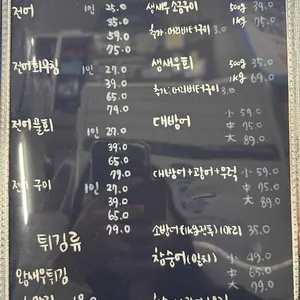 전어 1인 25.0
35.0
59.0
75.0
전어회무침 1인 27.0
39.0
65.0
79.0
전어물회 1인 27.0
39.0
65.0
79.0
전어구이 1인 27.0
39.0
65.0
79.0
튀김류
왕새우튀김
생새우소금구이 500g 39.0
1kg 75.0
추가: 머리버터구이 3.0
생새우회 500g 35.0
1kg 69.0
추가: 머리버터구이 3.0
대방어 小 59.0
中 75.0
大 89.0
대방어+광어+우럭 小 59.0
中 75.0
大 89.0
소방어 1마리 35.0
참숭어(밀치) 小 49.0
中 65.0
大 79.0